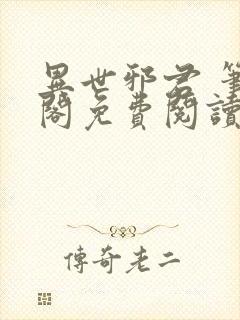 異世邪君 筆
閣免費閱讀
傳奇老二